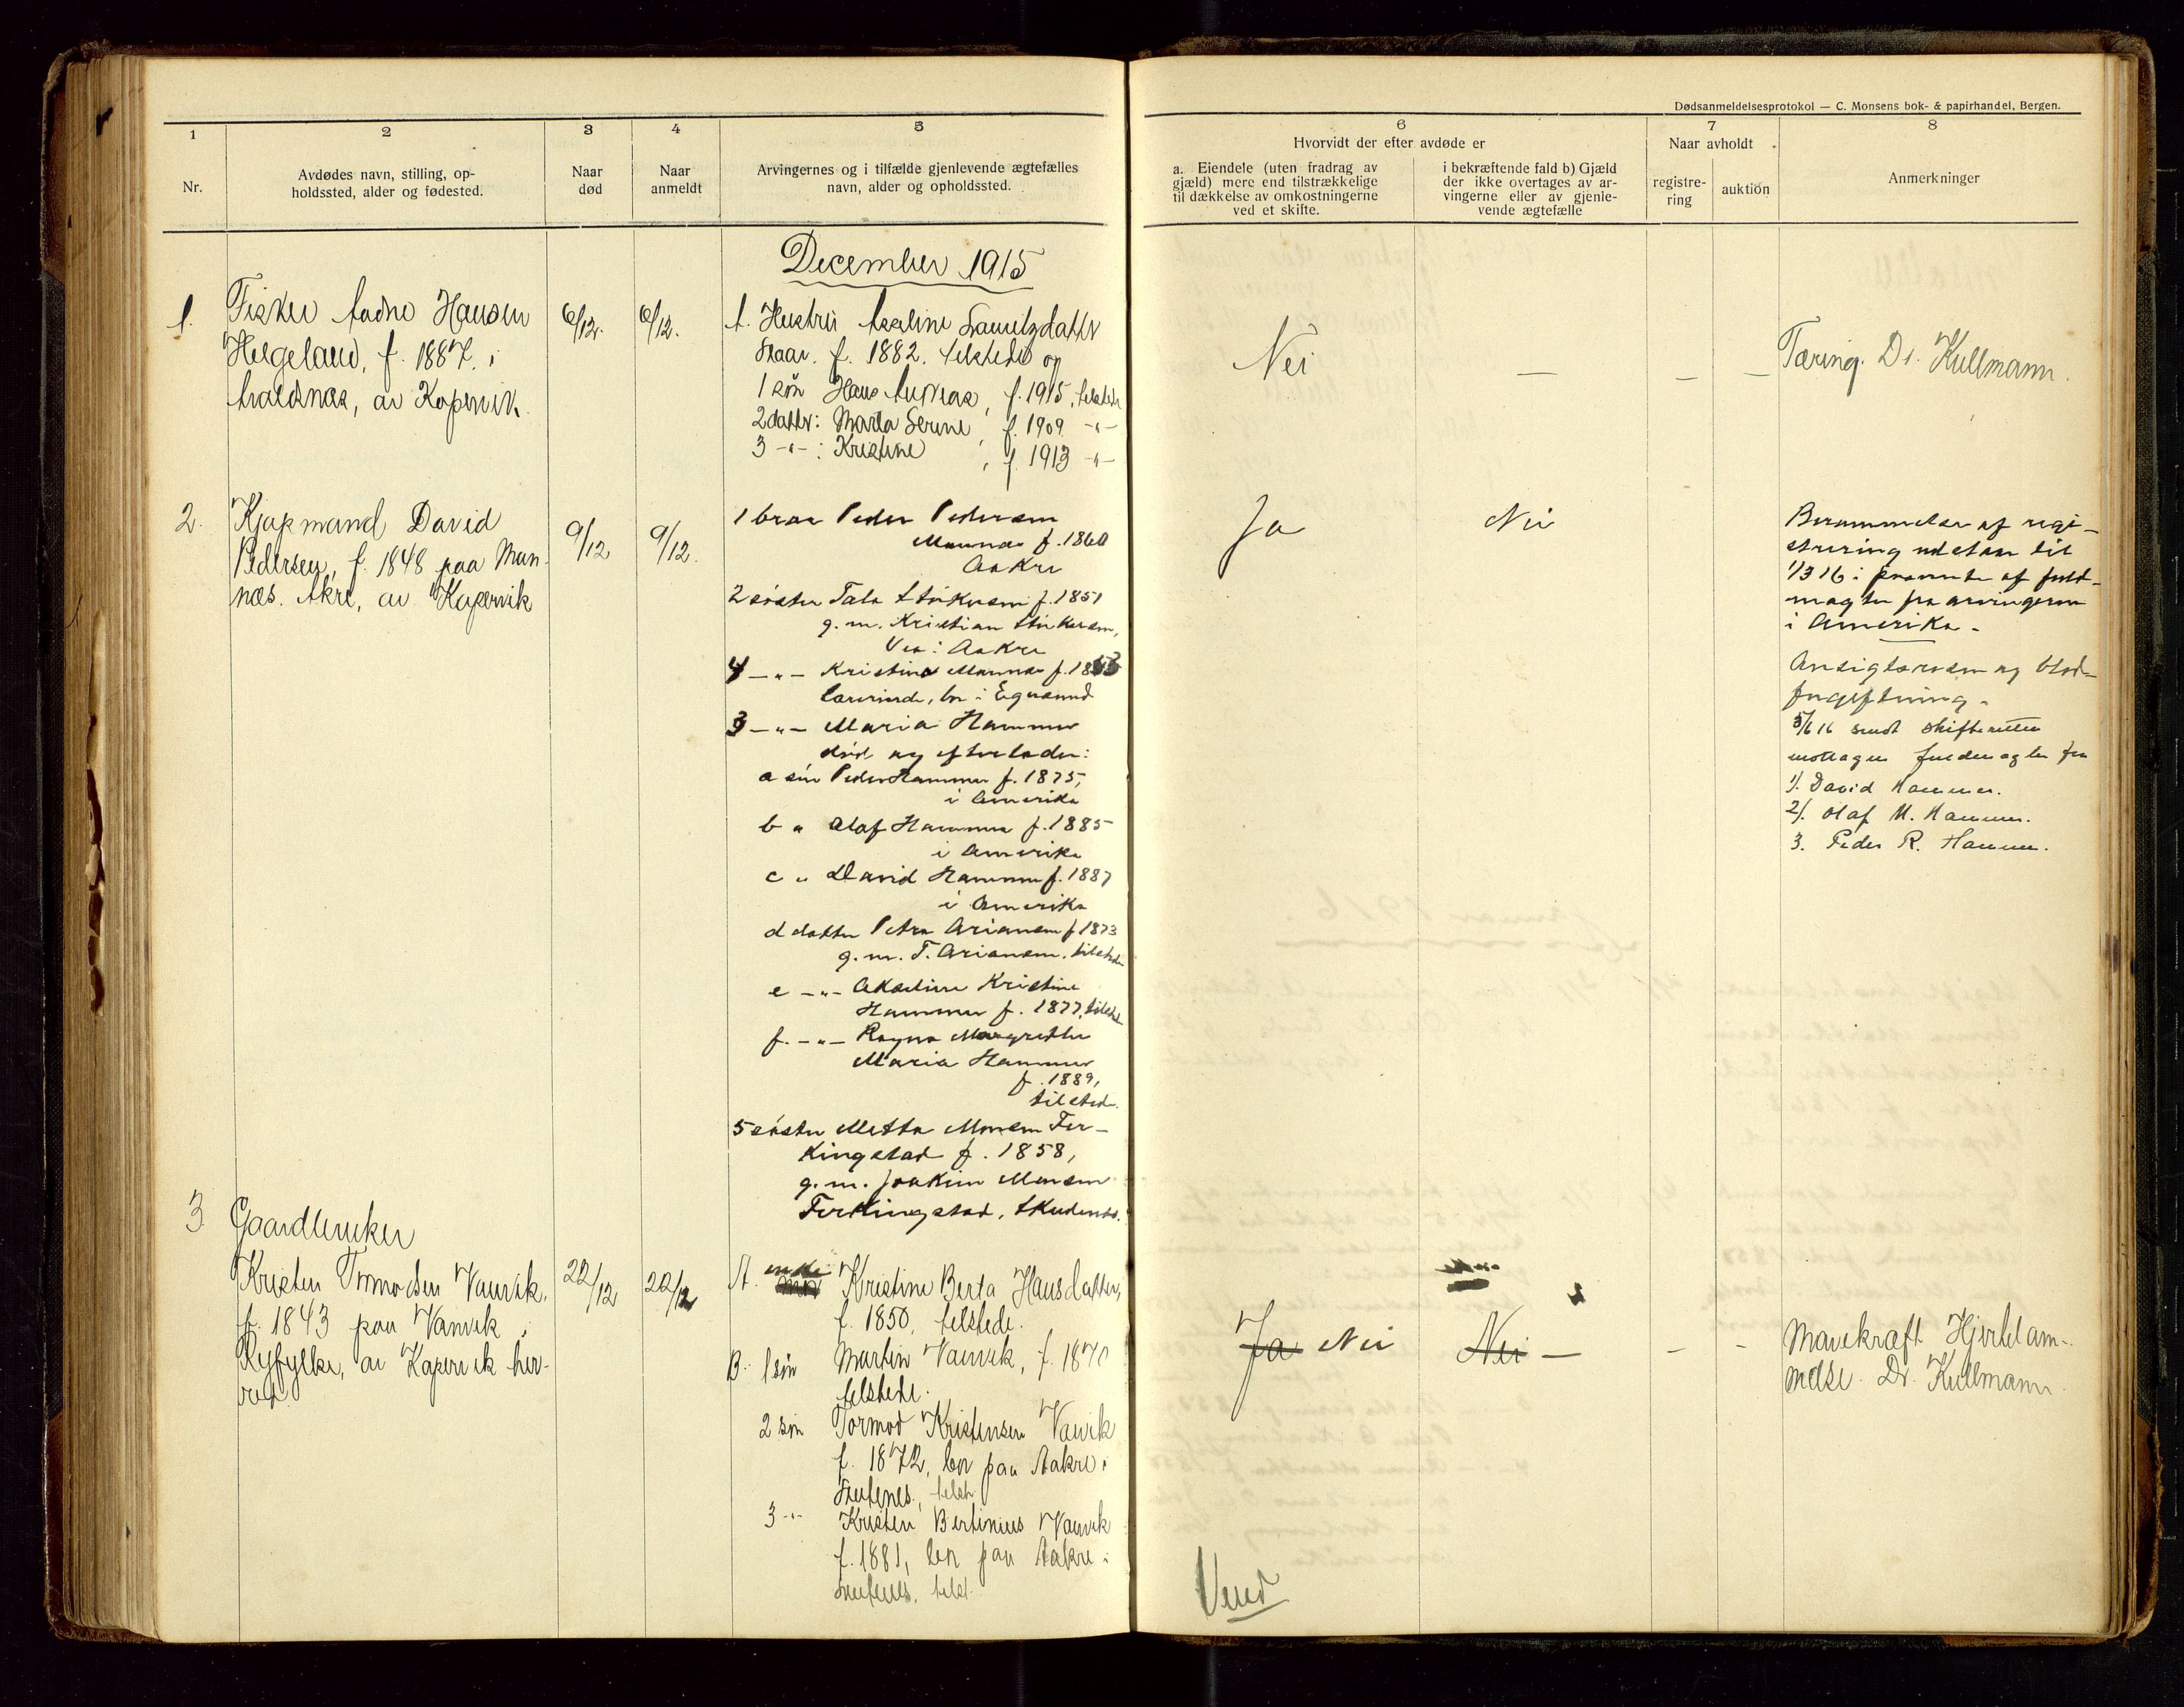 Dødsanmeldelsesprotokol — C. Monsens bok- & papirhandel, Bergen.
1
Nr.
2
Avdødes navn, stilling, op-
holdssted, alder og fødested.
3
Naar
død
4
Naar
anmeldt
5
Arvingernes og i tilfælde gjenlevende ægtefælles
navn, alder og opholdssted.
6
Hvorvidt der efter avdøde er
a. Eiendele (uten fradrag av
gjæld) mere end tilstrækkelige
til dækkelse av omkostningerne
ved et skifte.
i bekræftende fald b) Gjæld
der ikke overtages av ar-
vingerne eller av gjenle-
vende ægtefælle
7
Naar avholdt
registre-
ring
auktion
8
Anmerkninger
December 1915
1.
Fisker Aadne Hansen
Helgeland, f. 1887. i
Avaldsnæs, av Kopervik.
6/12.
6/12.
A. Hustru Asseline Lauritzdatter
f. 1882. tilstede og
1 søn Hans Andreas, f. 1915, tilstede
2 datter: Marta Serine, f. 1909 -"-
3 -"- : Kristine, f. 1913 -"-
Nei
—
—
—
Tæring. Dr. Kullmann.
2.
Kjøpmand David
Pedersen, f. 1848 paa Mun-
næs. Akre, av Kopervik
9/12
9/12.
1 bror Peder Pedersen
Munnæs f. 1860
Aakre
2 søster Tala Stirkersen f. 1851
g. m. Kristian Stirkersen,
Vea i Aakre
4 -"- Kristine Munnæs f. 1863
lærerinde, bor i Egersund
3 -"- Maria Hammer
død og efterlader:
a søn Peder Hammer f. 1875,
i Amerika
b " Olaf Hammer f. 1885
i Amerika
c " David Hammer f. 1887
i Amerika
d datter Petra Ariansen f 1873
g. m. T. Ariansen. tilstede
e -"- Akseline Kristine
Hammer f. 1877, tilstede
f. -"- Ragna Margrethe
Maria Hammer
f. 1889,
tilstede.
5 søster Metta Monsen Fer-
kingstad f. 1858,
g. m. Joakim Monsen
Ferkingstad, Skudenes.
Ja
Nei
Berammelse af regi-
strering udstaar til
1/3 16 i paavente af fuld-
magter fra arvingerne
i Amerika.
Ansigtsrosen og blod-
forgiftning.
5/6 16 sendt skifteretten
mottagne fuldmagter fra
1). David Hammer.
2). Olaf M. Hammer.
3. Peder R. Hammer.
3
Gaardbruker
Kristen Tormodsen Vanvik,
f. 1843 paa Vanvik i
Ryfylke, av Kopervik her-
red.
22/12
22/12
A. enke Kristine Berta Hansdatter,
f. 1850, tilstede.
B: 1 søn Martin Vanvik, f. 1870
tilstede.
2 søn Tormod Kristensen Vanvik
f. 1872, bor paa Aakre i
Skudenes, tilst.
3 -"- Kristen Bertinius Vanvik
f. 1881, bor paa Aakre i
Skudenes. tilst.
Ja Nei
Nei —
-
-
Mavekræft. Hjertelam-
melse. Dr. Kullmann.
Vend